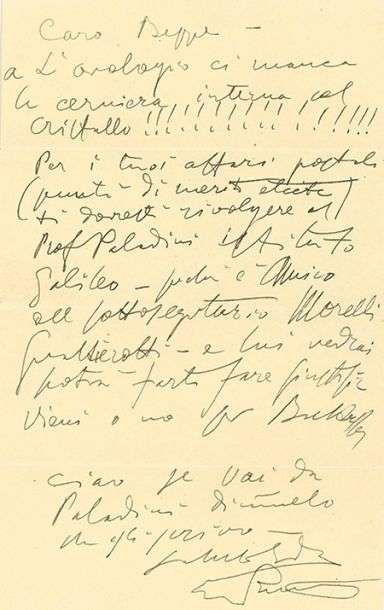 Caro Beppe –
a L'orologio ci manca
la cerniera interna col
cristallo !!!!!!!!!!!!!!!!
Per i tuoi affari postali
(punti di merito
ti dovresti rivolgere al
Prof Paladini istituto
Galileo – perché è Amico
del sottosegretario Morelli
Gualtierotti – e lui vedrai
potrà farti fare giustizia
Vieni o no per
Ciao se vai da
Paladini dimmelo
che gli scrivo –